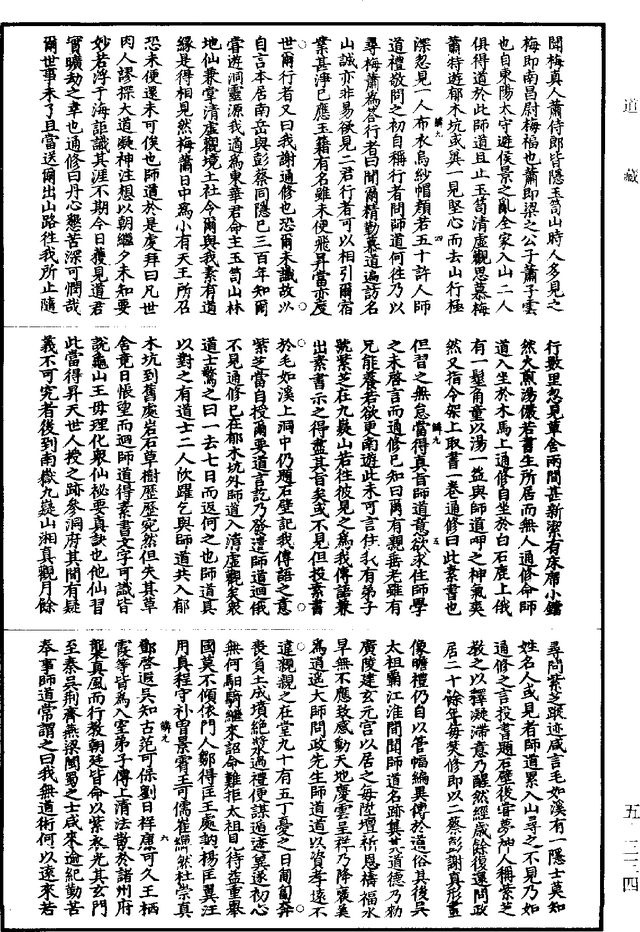 道藏
聞梅真人蕭侍郎皆隱玉笥山時人多見之
梅即南昌尉梅福也蕭即梁之公子蕭子雲
也自東陽太守遊侯景之亂全家入山二人
俱得道於此師道且止玉笥清虛觀思慕梅
蕭特遊郁木坑或冀一見堅心而去山行極
鱗九 四
深忽見一人布衣烏紗帽頹若五十許人師
道禮敬問之初自稱行者問師道何往乃以
尋梅蕭為答行者曰聞爾精勤慕道遍訪名
山誠亦非易欲見二君行者可以相引爾宿
業甚淨已應玉籍有名雖未便飛昇當亦度
世爾行者又曰我謝通修也恐爾未識故以
自言本居南岳與彭蔡同隱已三百年知爾
嘗遊洞靈源我適為東華君命主玉笥山林
地仙兼掌清虛觀境土社令爾與我素有道
緣是得相見然梅蕭日中為小有天王所召
恐未便還未可俟也師道於是虔拜曰凡世
肉人謬探大道凝神注想以朝繼夕未知要
妙若浮于海詎識其涯不期今日獲見道君
實曠劫之幸也通修曰丹心懇苦深可憫哉
爾世事未了且當送爾出山路往我所止隨
行數里忽見草舍兩間甚新潔有床席小鐺
然火煎湯儼若書生所居而無人通修命師
道入坐於木馬上通修自坐於白石鹿上俄
有一髽角童以湯一盌與師道呷之神氣爽
然又指令架上取書一卷通修曰此素書也
鱗九 五
但習之無怠當得真旨師道意欲求住師學
之未啓言而通修已知曰爾有親垂老雖有
兄能養若欲更南遊此未可言住我有弟子
號紫芝在九嶷山若往彼見之為我傳語兼
出素書示之得盡其旨矣或不見但投素書
於毛如溪上洞中仍題石壁記我傳語之意
紫芝當自授爾要道言訖乃發遣師道迴俄
不見通修已在郁木坑外師道入清虛觀衆
道士驚之曰一去七日而返何之也師道具
以對之有道士二人忻躍乞與師道共入郁
木坑到舊處岩石草樹歷歷宛然但失其草
舍竟日悵望而迴師道得素書文字可識皆
說龜山王母理化衆仙祕要真訣也他仙習
此當得昇天世人授之跡參洞府其間有疑
義不可究者後到南嶽九嶷山湘真觀月餘
尋問紫芝蹤迹咸言毛如溪有一隱士莫知
姓名人或見者師道累入山尋之不見乃如
通修之言投書題石壁後宿夢神人稱紫芝
教之以釋凝滯意乃醒然經歲餘復還問政
居二十餘年每焚修即以二蔡彭謝真形畫
像瞻禮仍自以管幅編異傳於道俗其後吳
太祖霸江淮間聞師道名跡異其道德乃勑
廣陵建玄元宮以居之每陞壇祈恩禱福水
旱無不應致感動天地慶雲呈祥乃降褒美
為逍遙大師問政先生師道道以資孝遠不
違親親之在堂九十有五丁憂之日匍匐奔
喪負土成墳絕漿過禮便謀遁迹冀遂初心
無何馹騎繼來詔命難拒太祖見待益重舉
國莫不傾依門人鄒得匡王處訥楊匡翼汪
用真程守朴曾景霄王可儒崔繟然杜崇真
鄧啓遐吳知古范可保劉日祥康可久王栖
鱗九 六
霞等皆為入室弟子傳上清法散於諸州府
襲真風而行教朝廷皆命以紫衣光其玄門
至秦吳荊齊燕梁閩蜀之士咸來逾紀勤苦
奉事師道常謂之曰我無道術何以遠來若
五—三三四